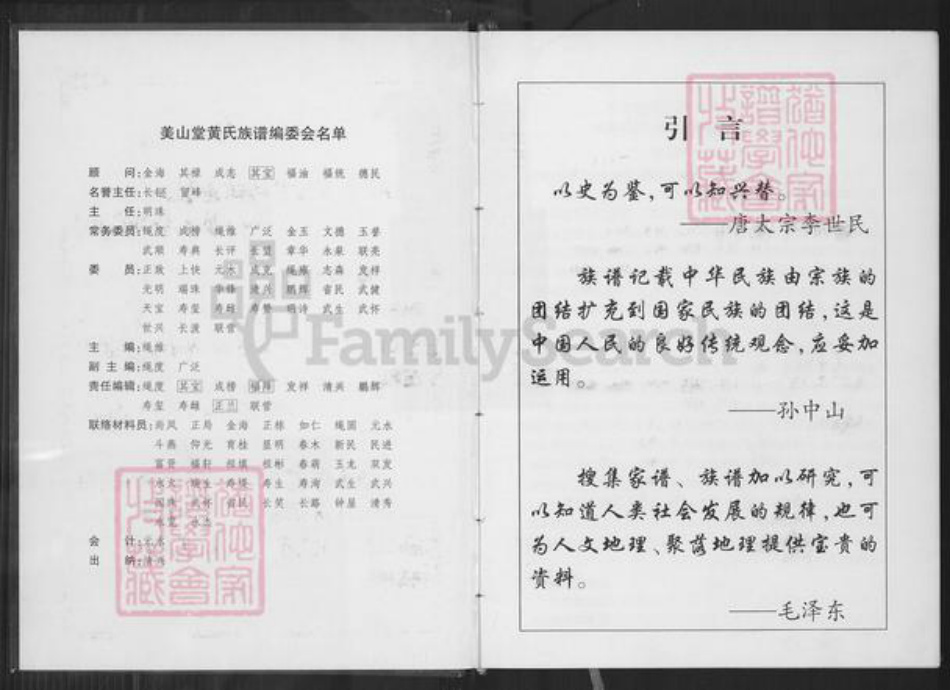 美山堂黄氏族谱编委会名单
顾 问:金海 其禄 成志 其宝 福油 福铣 德民
名誉主任:长榳 贸峰
主 任:明珠
常务委员:绳度 成榜 绳维 广泛 金玉 文德 玉誉
武顺 寿典 长评 长望 章华 永泉 联亮
委 员:正致 上快 元水 成克 绳雍 志森 发祥
光明 瑞珠 华锋 清兴 鹏辉 省民 武健
天宝 寿玺 寿雄 寿赞 明诗 武生 武怀
世兴 长波 联营
主 编:绳维
副主编:绳度 广泛
责任编辑:绳度 其宝 成榜 发祥 清兴 鹏辉
寿玺 寿雄 正兰 联营
联络材料员:尚凤 正局 金海 正栋 如仁 绳圃 元水
斗燕 仰光 育桂 显明 春木 新民 民进
富贵 福轩 祖填 祖彬 春萌 玉龙 双发
永大 寿生 寿洵 武生 武兴
武怀 省民 长笑 长路 钟屋 清秀
会 计:元水
出 纳:清兴
引 言
以史为鉴,可以知兴替。
——唐太宗李世民
族谱记载中华民族由宗族的
团结扩充到国家民族的团结,这是
中国人民的良好传统观念,应妥加
运用。
——孙中山
搜集家谱、族谱加以研究,可
以知道人类社会发展的规律,也可
为人文地理、聚落地理提供宝贵的
资料。
——毛泽东
FamilySearch